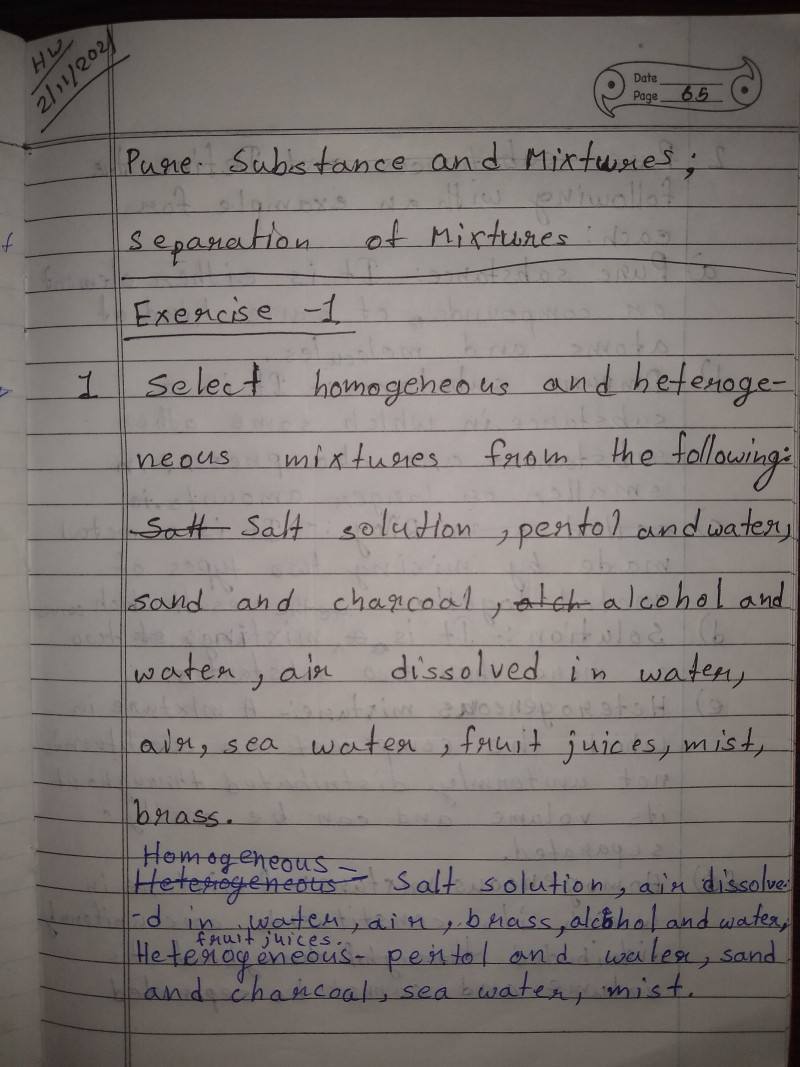 HW
2/11/2021
Date
Page 65
Pure. Substance and Mixtures;
separation of Mixtures
Exercise -1
1 Select homogeneous and heteroge-
neous mixtures from the following:
Salt solution, pertol and water,
sand and charcoal, alcohol and
water, air dissolved in water,
air, sea water, fruit juices, mist,
brass.
Homogeneous =
Heterogeneous - Salt solution, air dissolve
-d in water, air, brass, alcohol and water,
fruit juices.
Heterogeneous- pertol and water, sand
and charcoal, sea water, mist.